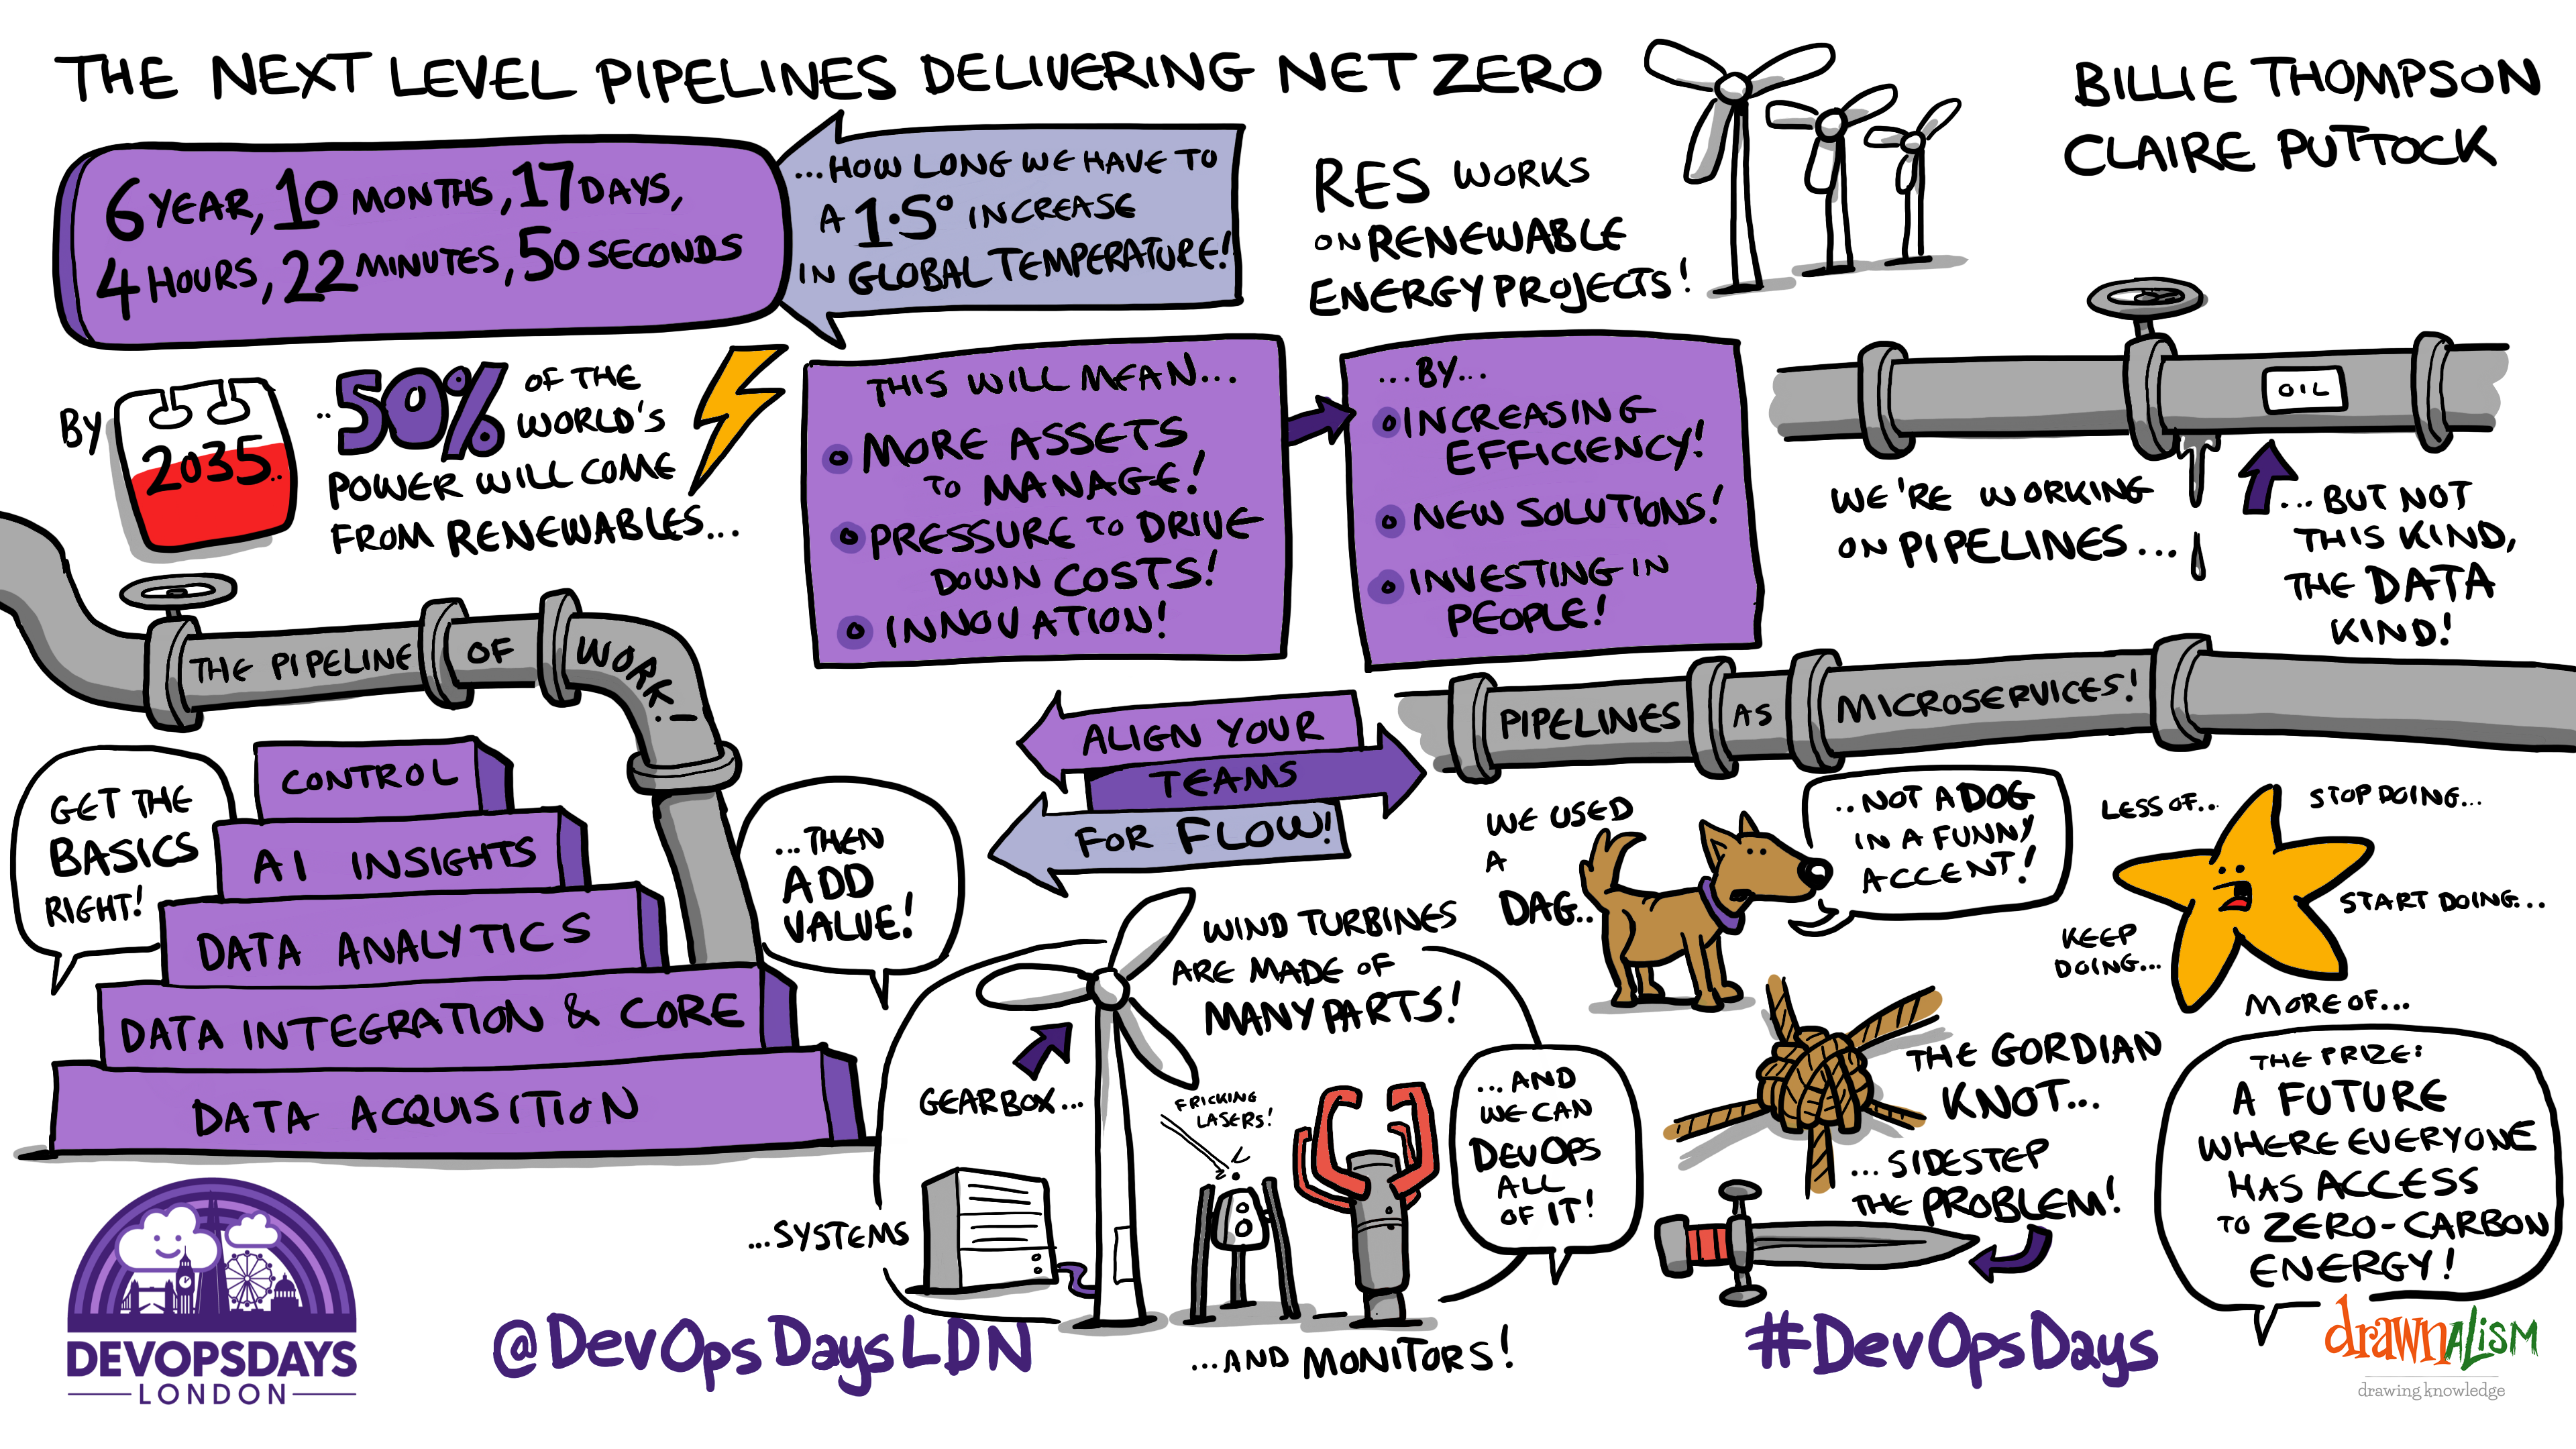 THE NEXT LEVEL PIPELINES DELIVERING NET ZERO
BILLIE THOMPSON
CLAIRE PUTTOCK
6 YEAR, 10 MONTHS, 17 DAYS,
4 HOURS, 22 MINUTES, 50 SECONDS
...HOW LONG WE HAVE TO
A 1.5° INCREASE
IN GLOBAL TEMPERATURE!
RES WORKS
ON RENEWABLE
ENERGY PROJECTS!
BY
2035..
..50% OF THE
WORLD'S
POWER WILL COME
FROM RENEWABLES...
THIS WILL MEAN...
MORE ASSETS
TO MANAGE!
PRESSURE TO DRIVE
DOWN COSTS!
INNOVATION!
...BY...
INCREASING
EFFICIENCY!
NEW SOLUTIONS!
INVESTING IN
PEOPLE!
OIL
WE'RE WORKING
ON PIPELINES...
...BUT NOT
THIS KIND,
THE DATA
KIND!
THE PIPELINE OF WORK!
GET THE
BASICS
RIGHT!
CONTROL
AI INSIGHTS
DATA ANALYTICS
DATA INTEGRATION & CORE
DATA ACQUISITION
...THEN
ADD
VALUE!
ALIGN YOUR
TEAMS
FOR FLOW!
PIPELINES AS MICROSERVICES!
WE USED
A
DAG..
..NOT A DOG
IN A FUNNY
ACCENT!
LESS OF...
STOP DOING...
START DOING...
KEEP
DOING...
MORE OF...
WIND TURBINES
ARE MADE OF
MANY PARTS!
GEARBOX...
FRICKING
LASERS!
...SYSTEMS
...AND MONITORS!
...AND
WE CAN
DEVOPS
ALL
OF IT!
THE GORDIAN
KNOT...
...SIDESTEP
THE PROBLEM!
THE PRIZE:
A FUTURE
WHERE EVERYONE
HAS ACCESS
TO ZERO-CARBON
ENERGY!
DEVOPSDAYS
LONDON
@DevOpsDaysLDN
#DevOpsDays
drawnalism
drawing knowledge